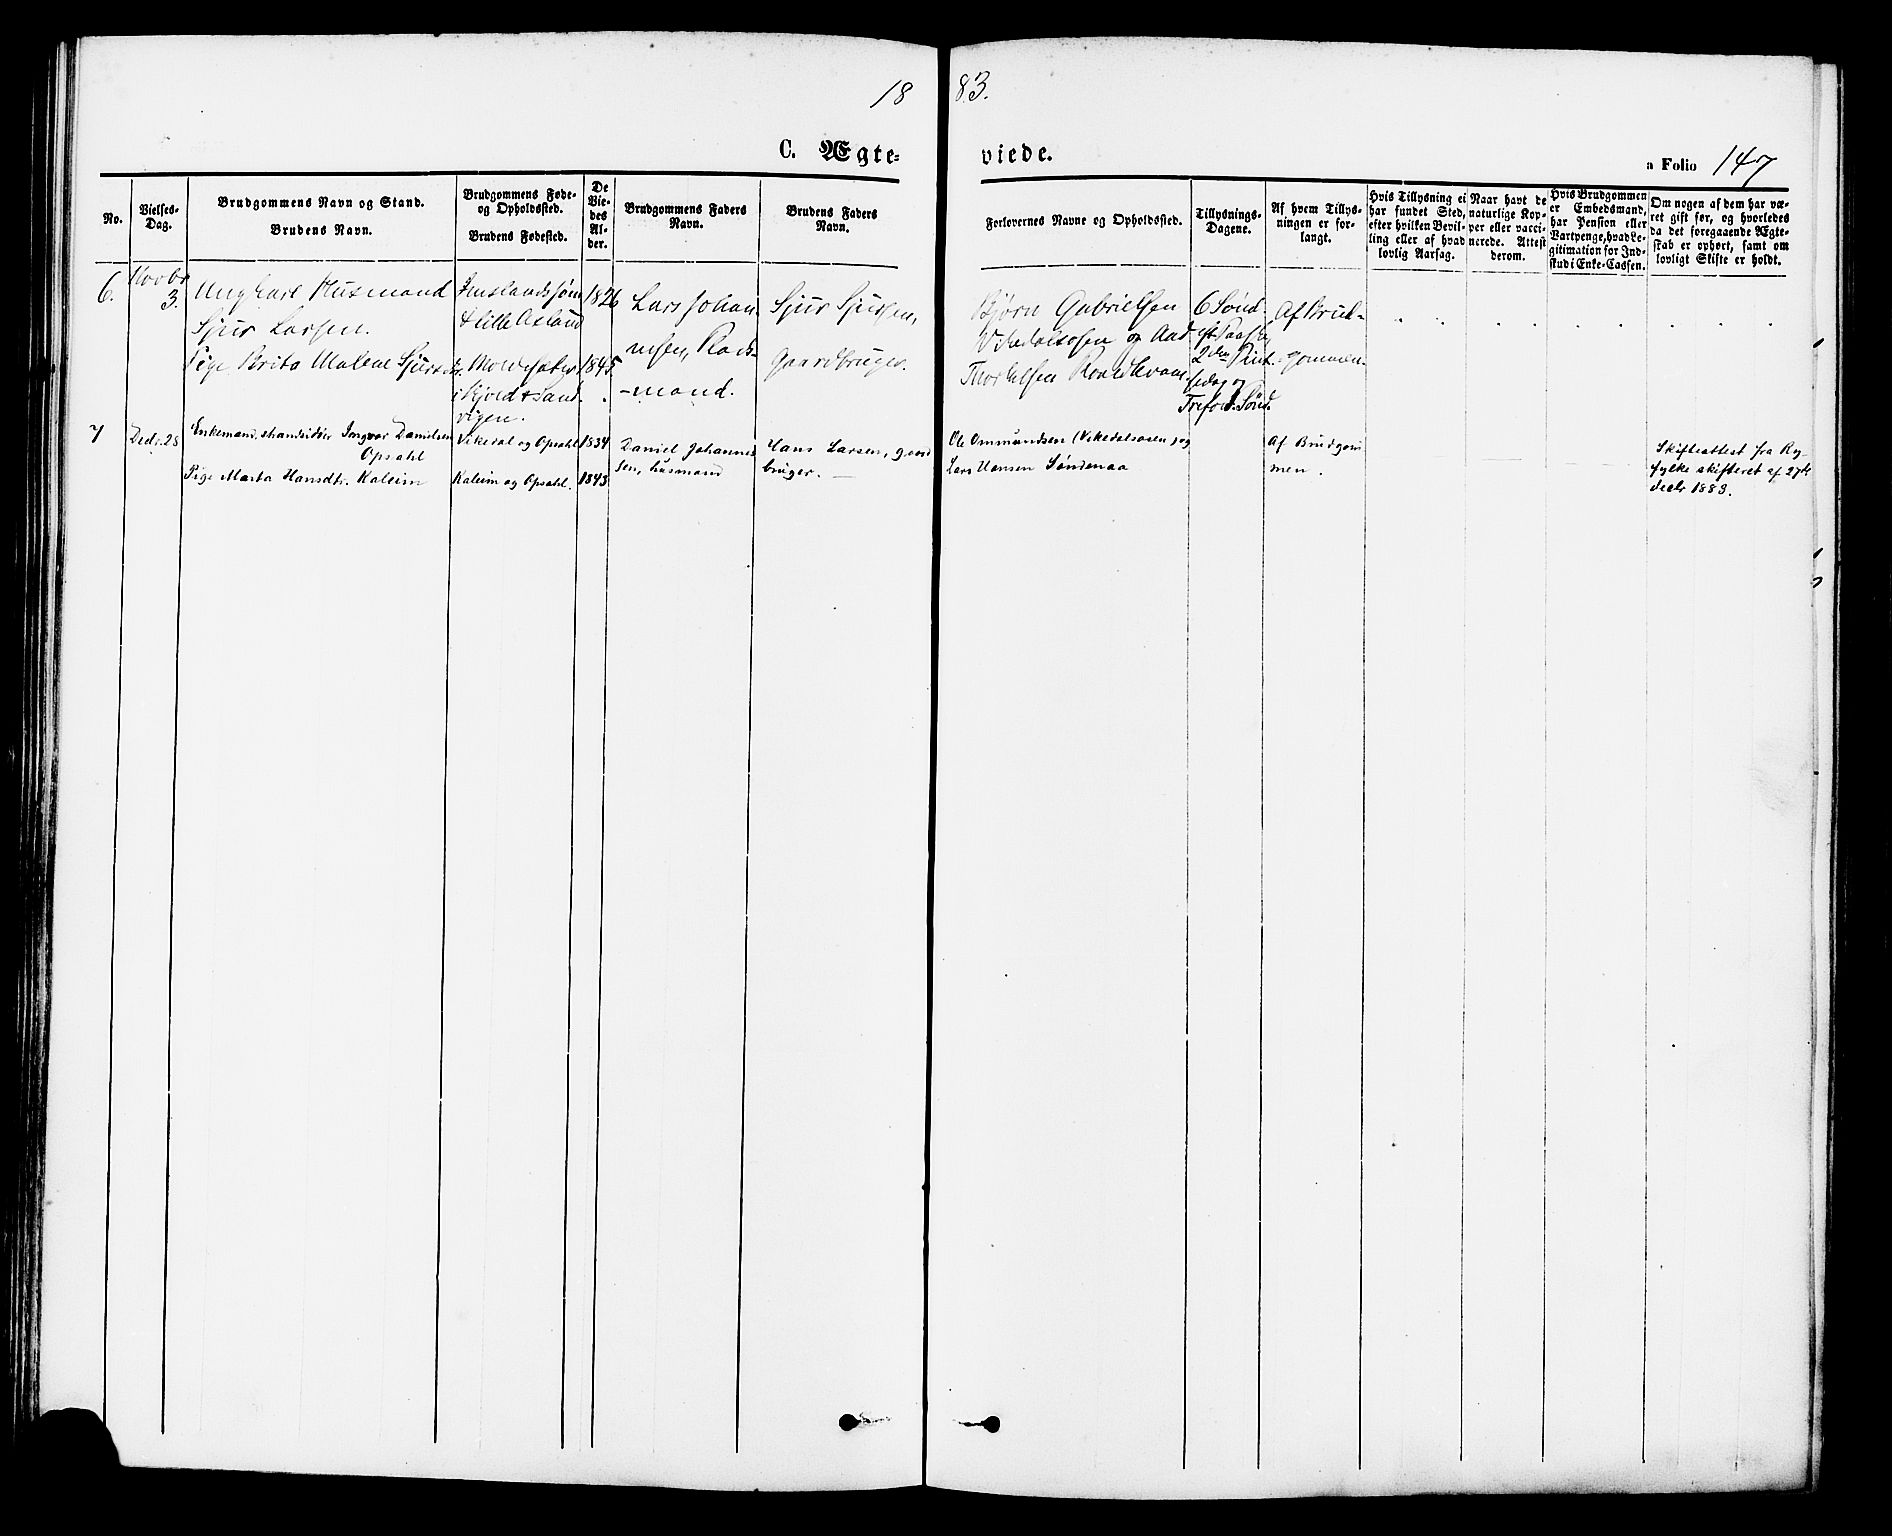 18 83.
C. Ægte- viede.
a Folio 147
No.
Vielses-
Dag.
Brudgommens Navn og Stand.
Brudens Navn.
Brudgommens Føde-
og Opholdssted.
Brudens Fødested.
De
Vie-
des
Al-
der.
Brudgommens Faders
Navn.
Brudens Faders
Navn.
Forlovernes Navne og Opholdssted.
Tillysnings-
Dagene.
Af hvem Tillys-
ningen er for-
langt.
Hvis Tillysning ei
har fundet Sted,
efter hvilken Bevil-
ling eller af hvad
lovlig Aarsag.
Naar havt de
naturlige Kop-
per eller vacci-
nerede. Attest
derom.
Hvis Brudgommen
er Embedsmand,
har Pension eller
Vartpenge, hvad Le-
gitimation for Ind-
skud i Enke-Cassen.
Om nogen af dem har væ-
ret gift før, og hvorledes
da det foregaaende Ægte-
skab er ophørt, samt om
lovligt Skifte er holdt.
6.
Novbr
3.
Ungkarl Husmand
Sjur Larsen.
Pige Brita Malene Sjursd.
& lille Oxland
i Skjold & Sand-
vigen.
1826
1845.
Lars Johan-
nesen, Plads-
-mand.
Sjur Sjursen,
Gaardbruger.
Bjørn Gabrielsen
Vikedalsosen og Aad
Thorkelsen
6 Sønd.
eft. Paaske,
2den Pint-
sedag og
Trefold. Sønd.
Af Brud-
gommen.
7
Decbr. 28
Enkemand, strandsidder Ingvar Danielsen
Opsahl
Pige Marta Hansdtr. Kaleim
Vikedal og Opsahl
Kaleim og Opsahl.
1834
1843
Daniel Johannes
sen, husmand
Hans Larsen, gaard
bruger.
Ole Ommundsen (Vikedalsosen) og
Lars Hansen Søndenaa
Af Brudgom
men.
Skifteattest fra Ry-
fylke skifteret af 27de
decbr 1883.